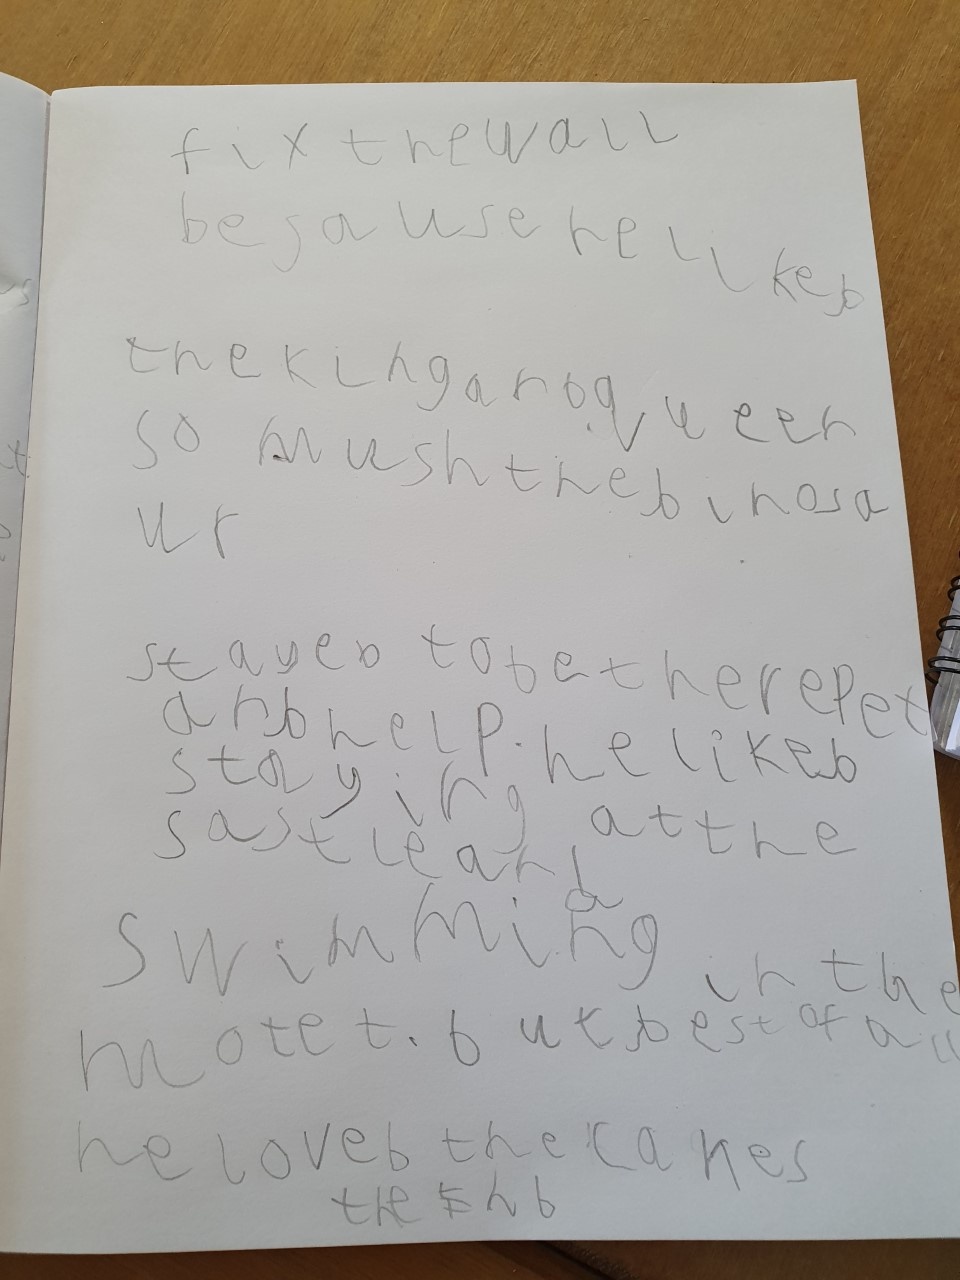 fix thewall
besause he likeb
thekinganbqueen
so mushthebinosa
ur
stayeb tobetherepet
anbhelp. he likeb
staying at the
sastleanb
swimming in the
motet. butbest of all
he loveb the cakes
the Enb